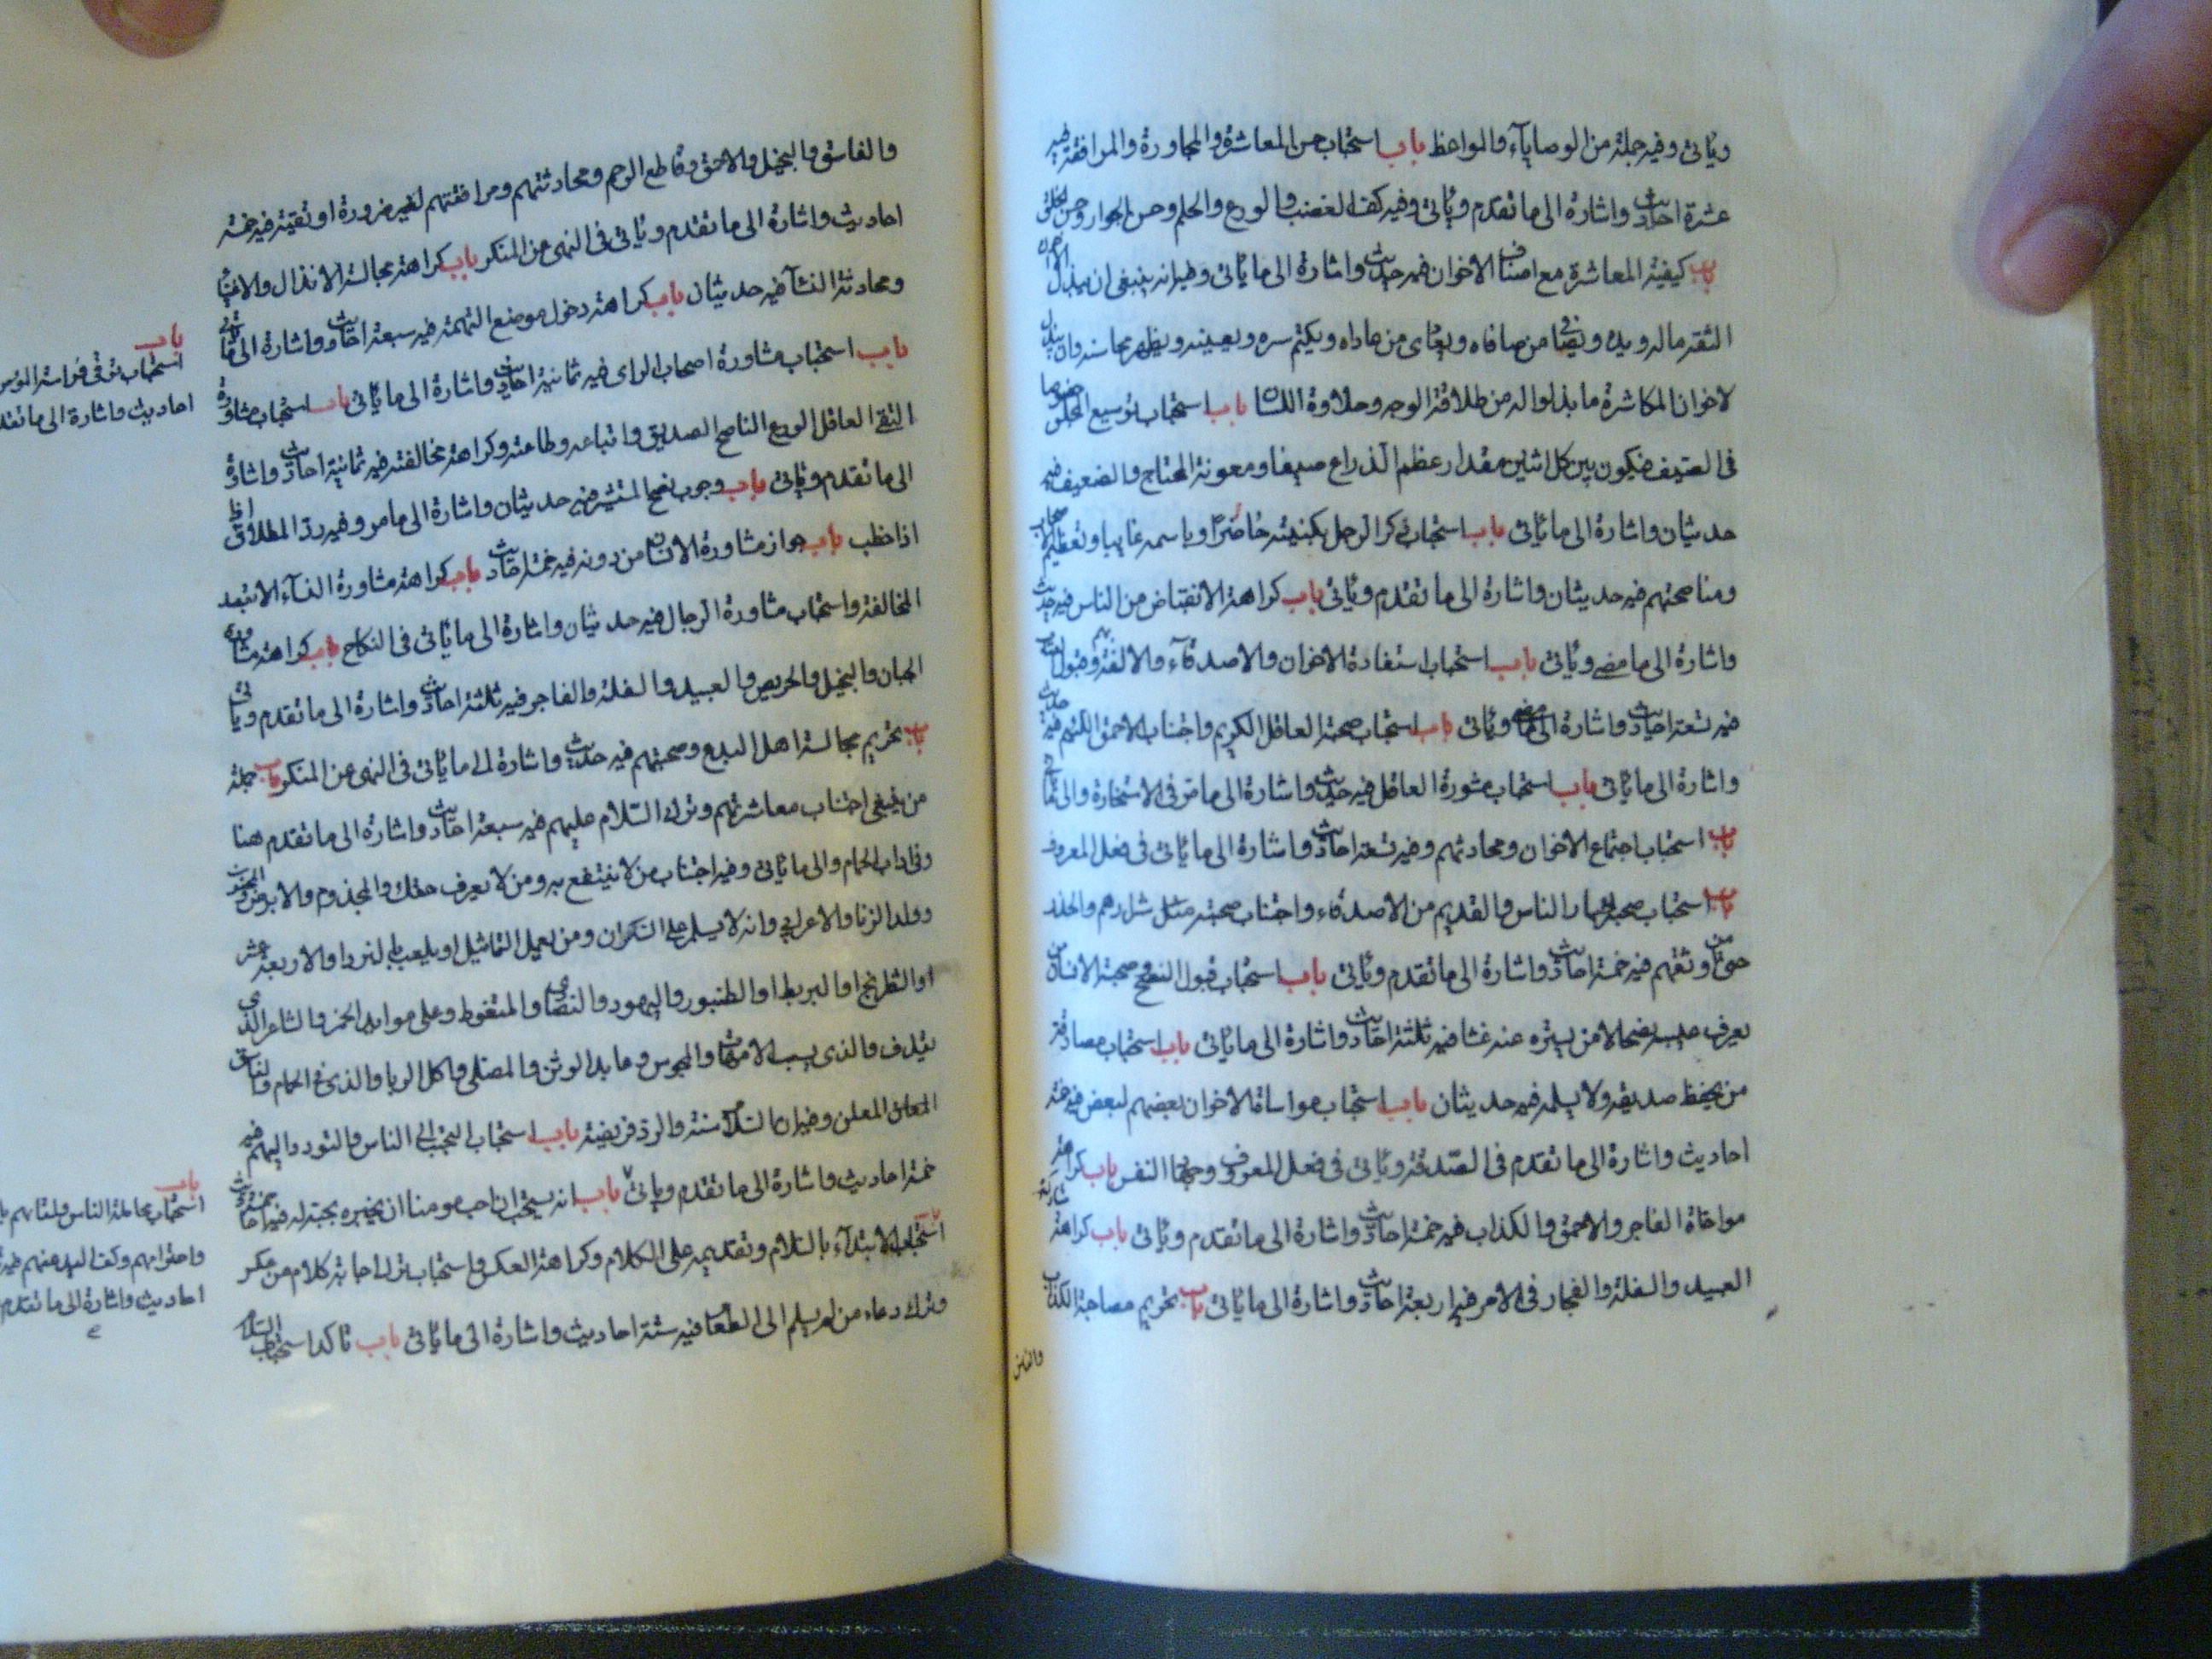 ويأتى وفيه جملة من الوصايآء والمواعظ باب استحباب حسن المعاشرة والمجاورة والمرافقة فيه
عشرة احاديث واشارة الى ما تقدم ويأتى وفيه كف الغضب والورع والحلم وحسن الجوار وحسن الخلق
باب كيفية المعاشرة مع اصناف الاخوان فيه حديث واشارة الى ما يأتى وفيه انه ينبغى ان يبذل
الثقة ماله ويده ويصافى من صافاه ويعادى من عاداه ويكتم سره ويعينه ويظهر محاسنه وان يبذل
لاخوان المكاشرة ما بذلوا له من طلاقة الوجه وحلاوة اللسان باب استحباب توسيع المجلس خصوصا
فى الصيف فيكون بين كل اثنين مقدار عظم الذراع صيفا ومعونة المحتاج والضعيف فيه
حديثان واشارة الى ما يأتى باب استحباب ذكر الرجل بكنيته حاضرًا وباسمه غايبا وتعظيم الاصحاب
ومناصحتهم فيه حديثان واشارة الى ما تقدم ويأتى باب كراهة الانقباض من الناس فيه حديث
واشارة الى ما مضى ويأتى باب استحباب استفادة الاخوان والاصدقآء والالفة بهم وقبول العتاب
فيه تسعة احاديث واشارة الى ما مضى ويأتى باب استحباب صحبة العاقل الكريم واجتناب الاحمق اللئيم فيه حديث
واشارة الى ما يأتى باب استحباب مشورة العاقل فيه حديث واشارة الى ما مر فى الاستخارة والى ما يأتى
باب استحباب اجتماع الاخوان ومحادثتهم وفيه تسعة احاديث واشارة الى ما يأتى فى فعل المعروف
باب استحباب صحبة خيار الناس والقديم من الاصدقاء واجتناب صحبة شرارهم والحذر
حتى من اوثقهم فيه خمسة احاديث واشارة الى ما تقدم ويأتى باب استحباب قبول النصح وصحبة الانسان من
يعرف عيبه نصحا لا من يستره عنه غشا فيه ثلثة احاديث واشارة الى ما يأتى باب استحباب مصادقة
من يحفظ صديقه ولا يسلمه فيه حديثان باب استحباب مواساة الاخوان بعضهم لبعض فيه خمسة
احاديث واشارة الى ما تقدم فى الصدقة ويأتى فى فعل المعروف وجهاد النفس باب كراهة
مواخاة الفاجر والاحمق والكذاب فيه خمسة احاديث واشارة الى ما تقدم ويأتى باب كراهة مشاركة
العبيد والسفلة والفجار فى الامر فيه اربعة احاديث واشارة الى ما يأتى باب تحريم مصاحبة الكذاب
والفاسق
والفاسق والبخيل والاحمق وقاطع الرحم ومحادثتهم ومرافقتهم لغير ضرورة او تقية فيه خمسة
احاديث واشارة الى ما تقدم ويأتى فى النهى عن المنكر باب كراهة مجالسة الانذال والاغنيآ
ومحادثة النسآ فيه حديثان باب كراهة دخول موضع التهمة فيه سبعة احاديث واشارة الى ما يأتى
باب استحباب مشاورة اصحاب الراى فيه ثمانية احاديث واشارة الى ما يأتى باب استحباب مشاورة
التقى العاقل الورع الناصح الصديق واتباعه وطاعته وكراهة مخالفته فيه ثمانية احاديث واشارة
الى ما تقدم ويأتى باب وجوب نصح المستشير فيه حديثان واشارة الى ما مر وفيه رد المطلاق اذا
اذا خطب باب جواز مشاورة الانسان من دونه فيه خمسة احاديث باب كراهة مشاورة النسآء الا بقصد
المخالفة واستحباب مشاورة الرجال فيه حديثان واشارة الى ما يأتى فى النكاح باب كراهة مشاورة
الجبان والبخيل والحريص والعبيد والسفلة والفاجر فيه ثلثة احاديث واشارة الى ما تقدم ويأتى
باب تحريم مجالسة اهل البدع وصحبتهم فيه حديث واشارة الى ما يأتى فى النهى عن المنكر باب جملة
من ينبغى اجتناب معاشرتهم وترك السلام عليهم فيه سبعة احاديث واشارة الى ما تقدم هنا
وفى اداب الحمام والى ما يأتى وفيه اجتناب من لا ينتفع به ومن لا يعرف حقك والمجذوم والابرص والمجنون
وولد الزنا والاعرابى وانه لا يسلم على السكران ومن يعمل التماثيل او يلعب بالنرد او الاربعة عشر
او الشطرنج او البربط او الطنبور واليهود والنصارى والمتغوط وعلى موايد الخمر والشاعر الذى
يقذف والذى يسب الامهات والمجوس وعابد الوثن والمصلى واكل الربا والذى فى الحمام والفاسق
المعلن وفيه ان السلام سنة والرد فريضة باب استحباب التحبب الى الناس والتودد اليهم فيه
خمسة احاديث واشارة الى ما تقدم ويأتى باب انه يستحب لمن احب مومنا ان يخبره بحبه له فيه خمسة احاديث
استحباب الابتدآء بالسلام وتقديمه على الكلام وكراهة العكس واستحباب ترك اجابة كلام من عكس
وترك دعاء من لم يسلم الى الطعام فيه ستة احاديث واشارة الى ما يأتى باب تاكد استحباب السلام
باب
استحباب توقى فراسة المؤمن
احاديث واشارة الى ما تقدم
باب
استحباب مجاملة الناس ولقائهم
واحترامهم وكف اليد عنهم فيه
احاديث واشارة الى ما تقدم